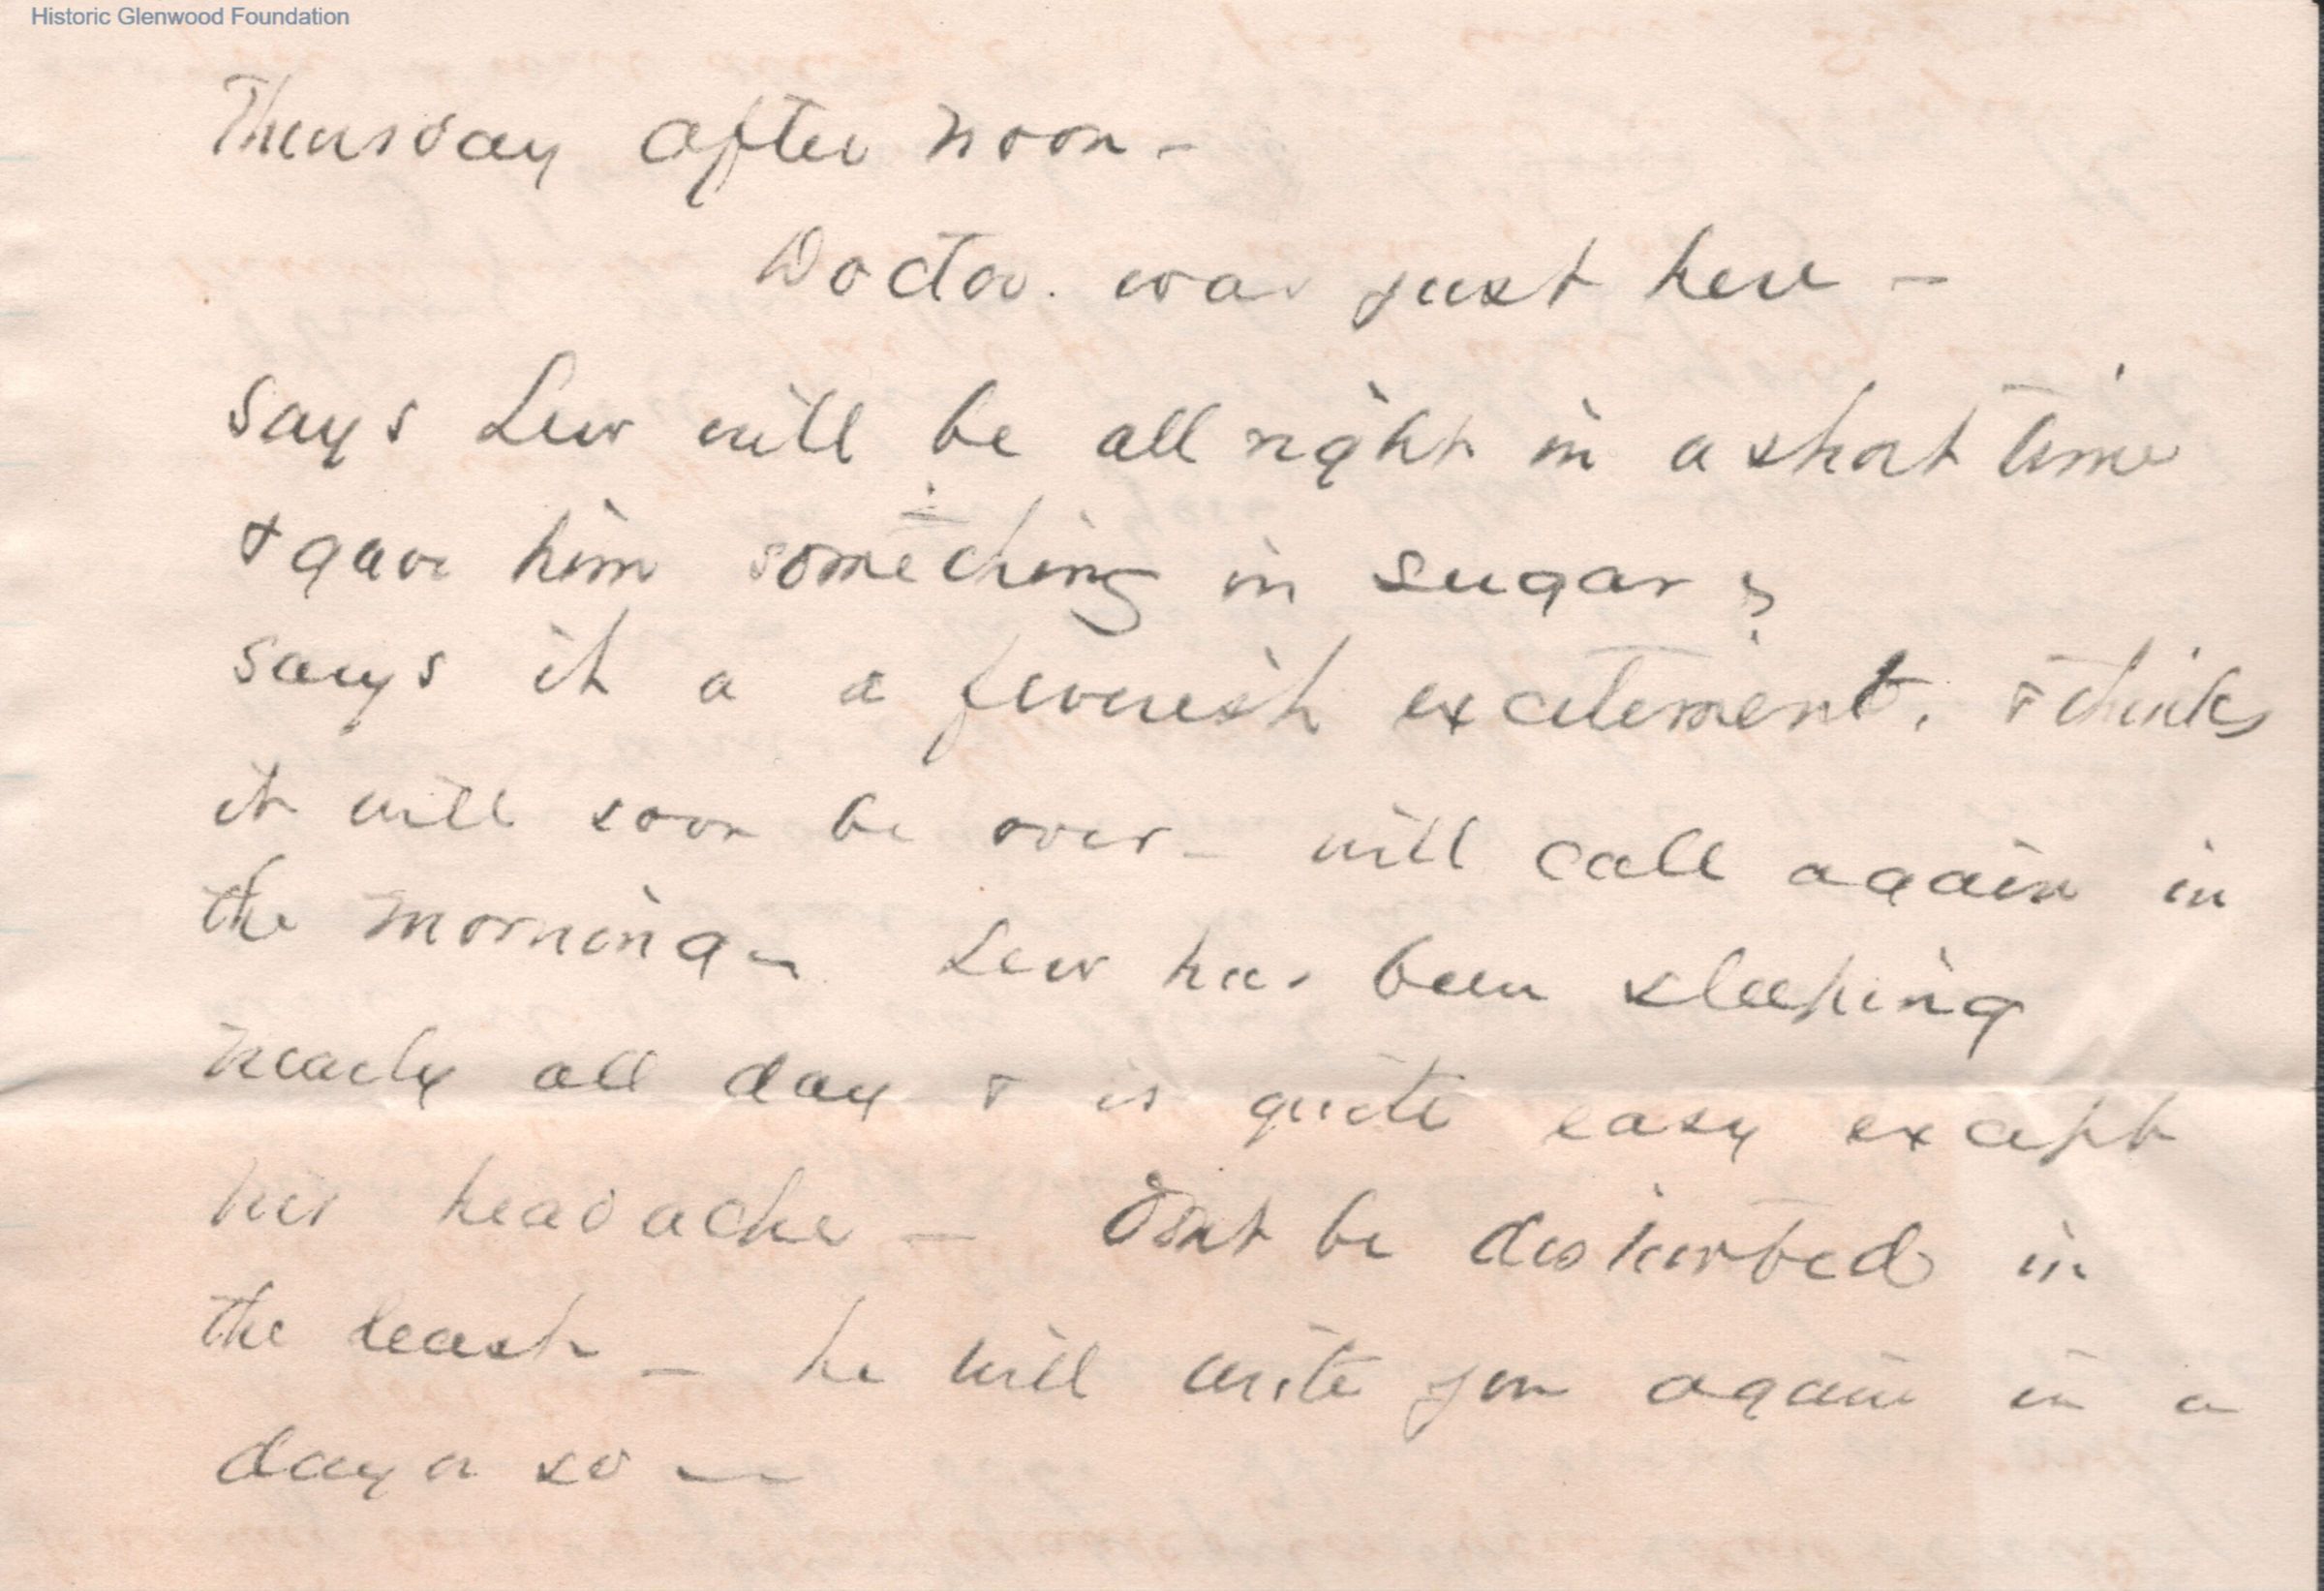 Historic Glenwood Foundation
Thursday after noon -
Doctor. was just here -
says Lew will be all right in a short time
& gave him something in sugar ;
says it a a feverish excitement. & thinks
it will soon be over - will call again in
the morning - Lew has been sleeping
nearly all day & is quite easy except
his headache - Dont be disturbed in
the least - he will write you again in a
day or so -